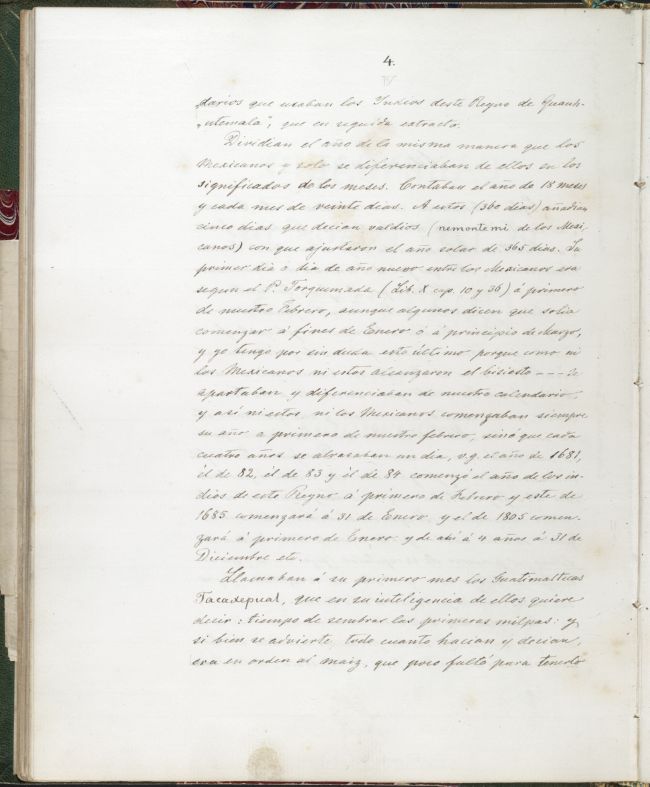 4.
„darios que usaban los Indios deste Reyno de Guauh-
„utemala", que en seguida extracto.
Dividian el año de la misma manera que los
Mexicanos y solo se diferenciaban de ellos en los
significados de los meses. Contaban el año de 18 meses
y cada mes de veinte dias. A estos (360 dias) añadian
cinco dias que decian valdios (nemontemi de los Mexi-
canos) con que ajustaron el año solar de 365 dias. Su
primer dia ó dia de año nuevo entre los Mexicanos era
segun el P. Torquemada (Lib. X cap. 10 y 36) á primero
de nuestro Febrero, aunque algunos dicen que solia
comenzar á fines de Enero ó á principio de Marzo,
y yo tengo por sin duda esto último porque como ni
los Mexicanos ni estos alcanzaron el bisiesto - - - - se
apartaban y diferenciaban de nuestro calendario,
y así ni estos, ni los Mexicanos comenzaban siempre
su año a primero de nuestro febrero, sinó que cada
cuatro años se atrasaban un dia, v.g. el año de 1681,
él de 82, él de 83 y él de 84 comenzó el año de los in-
dios de este Reyno á primero de Febrero y este de
1685 comenzará á 31 de Enero y el de 1805 comen-
zará á primero de Enero y de ahi á 4 años á 31 de
Diciembre etc.
Llamaban á su primero mes los Guatimaltecas
Tacaxepual, que en su inteligencia de ellos quiere
decir: tiempo de sembrar las primeras milpas: y
si bien se advierte, todo cuanto hacian y decian,
era en orden al maiz, que poco faltó para tenerlo